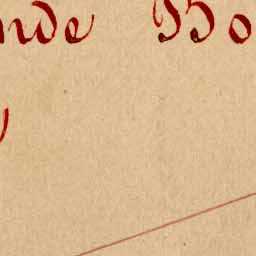 nde Bo